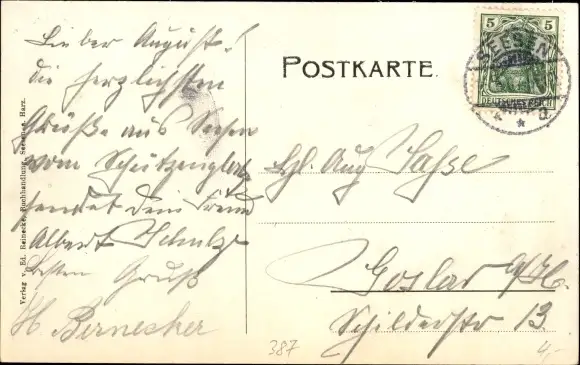 Lieber August!
die herzlichsten
Grüße aus Seesen
vom Schützenplatz
sendet dein Freund
Albert Schulze
besten Gruß
H Bernecker
Verlag v. Ed. Beinecke, Buchhandlung, Seesen a. Harz.
POSTKARTE.
5 5
DEUTSCHES REICH
SEESEN
Aug Sasse
Goslar a/H.
Schilderstr 13
387
4,-